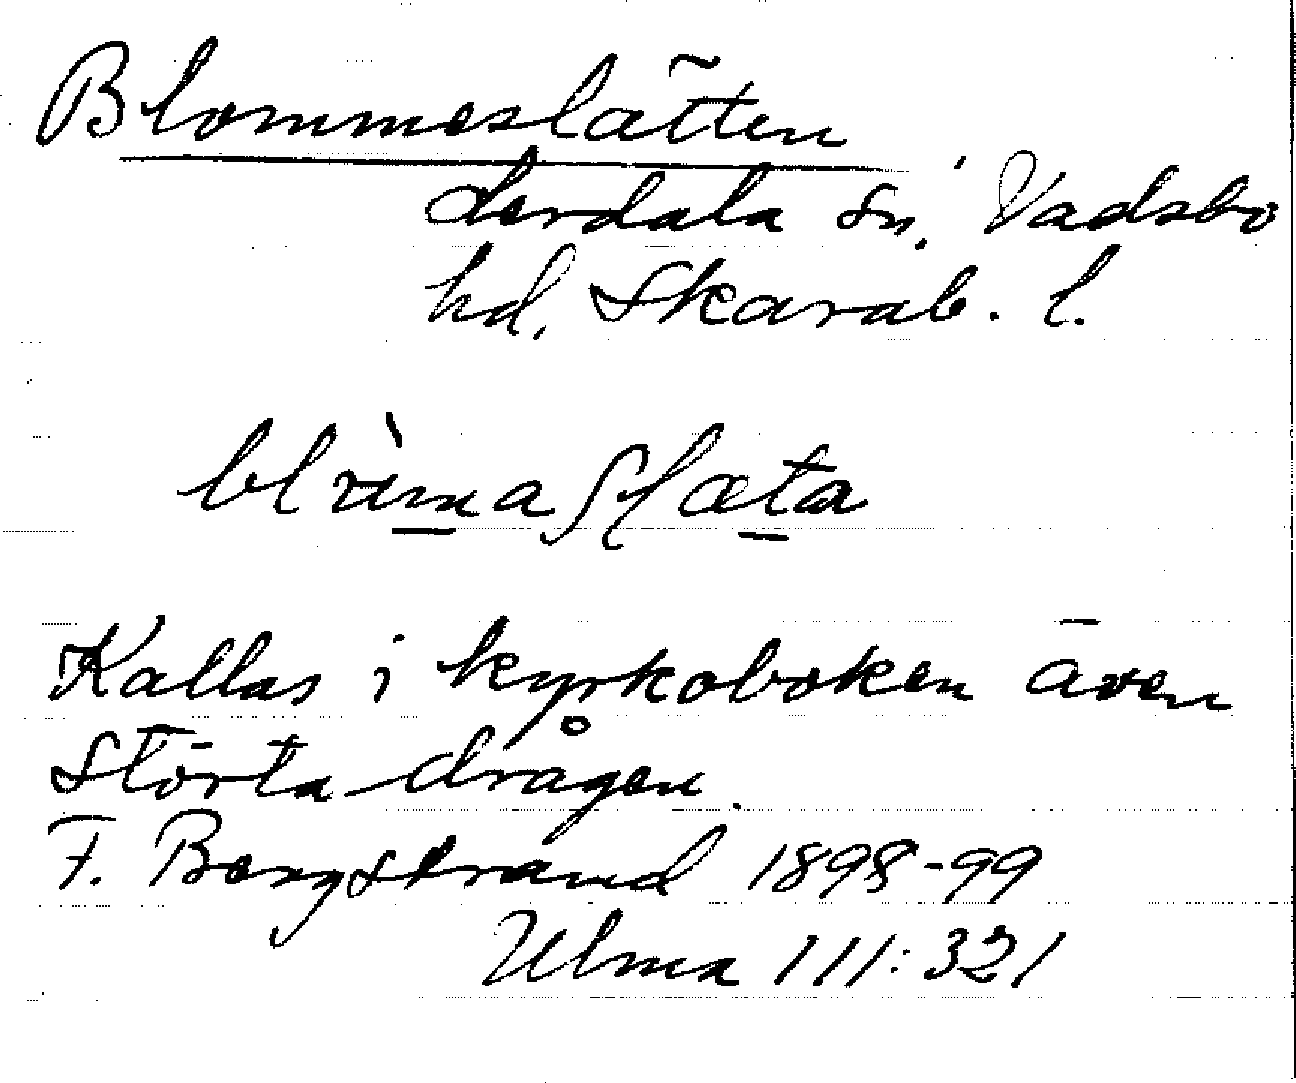 Blommeslätten
Lerdala sn, Vadsbo
hd, Skarab. l.
Kallas i kyrkoboken även
Störta drågen.
F. Bergstrand 1898-99
Ulma 111:321